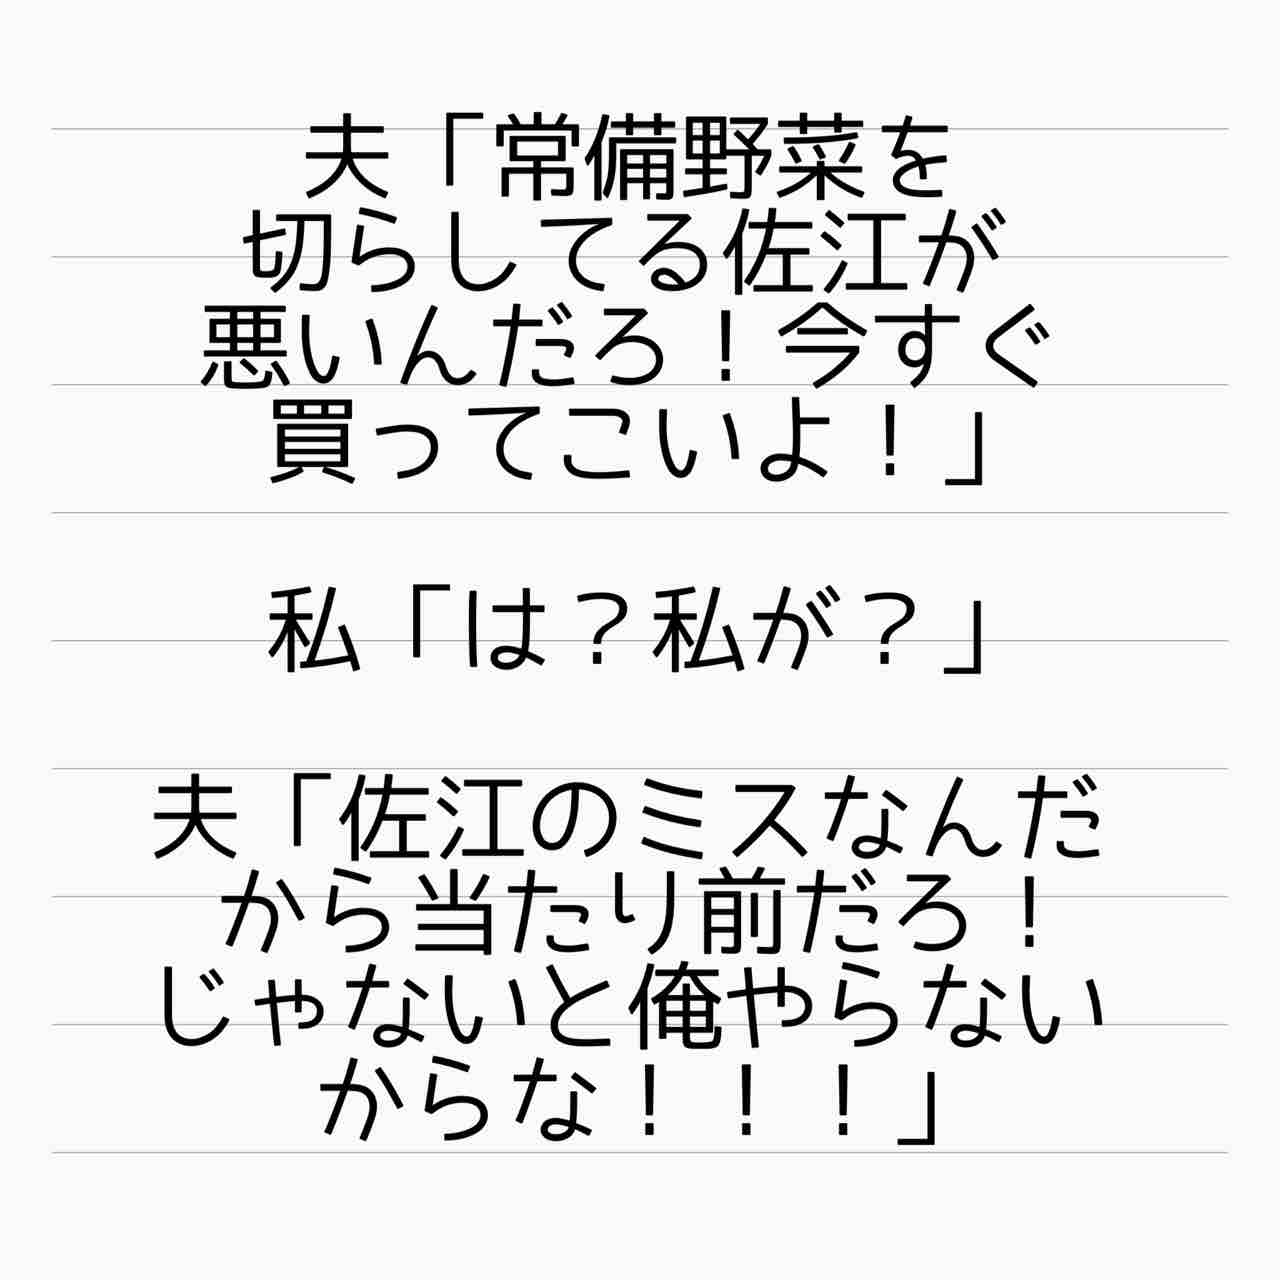 夫「常備野菜を
切らしてる佐江が
悪いんだろ！今すぐ
買ってこいよ！」
私「は？私が？」
夫「佐江のミスなんだ
から当たり前だろ！
じゃないと俺やらない
からな！！！」